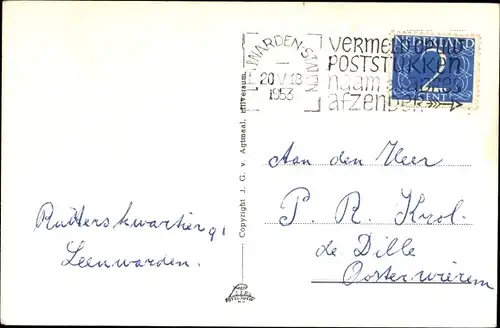 LEEUWARDEN-STATION
20 V 18
1953
VERMELD OP UW
POSTSTUKKEN
naam
afzender
NEDERLAND
2
CENT
Aan den Heer
P. R. Krol.
de Dille
Oosterwierum
Ruiterskwartier 91
Leeuwarden.
Copyright J. G. v. Agtmaal, Hilversum.